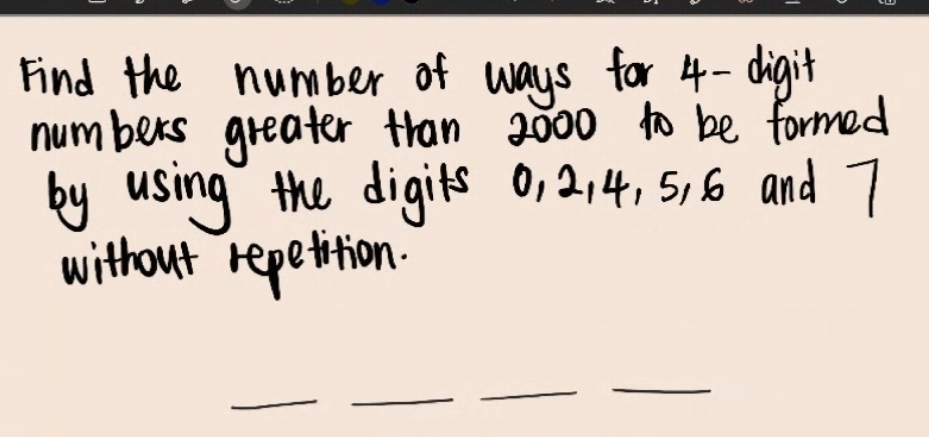 Find the number of ways for 4-digit
numbers greater than 2000 to be formed
by using the digits 0, 2, 4, 5, 6 and 7
without repetition.